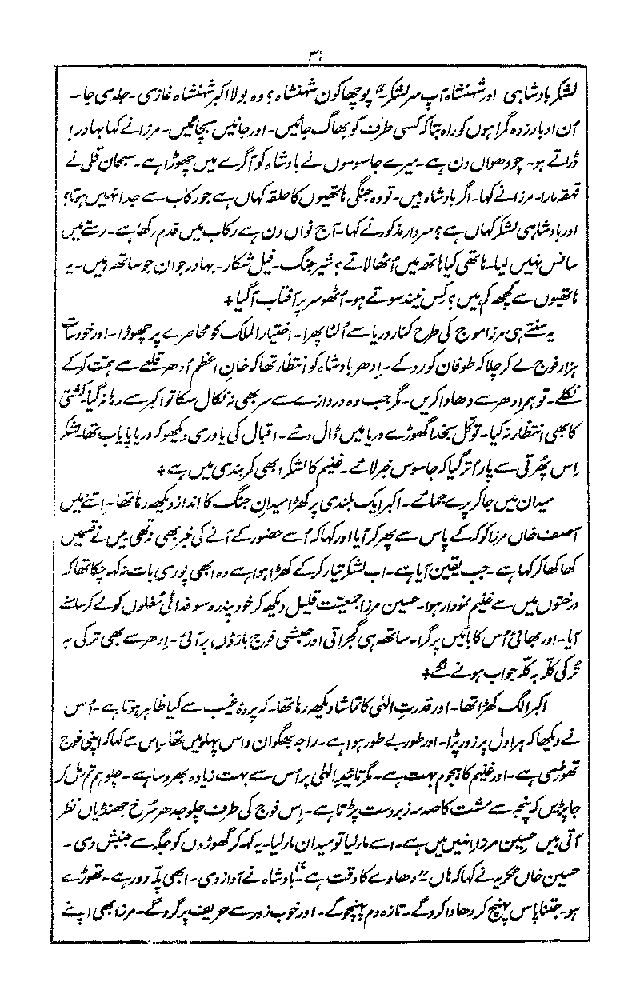 ۳۱
لشکر بادشاہی اور شہنشاہ آپ سر لشکر پوچھا کون شہنشاہ؟ وہ بولا اکبر شہنشاہ غازی۔ جلدی جا۔
اُن ادبار زدہ گمراہوں کو راہ بتا کہ کسی طرف کو بھاگ جائیں۔ اور جانیں بچائیں۔ مرزا نے کہا بہادر!
ڈراتے ہو۔ چودھواں دن ہے۔ میرے جاسوسوں نے بادشاہ کو آگرے میں چھوڑا ہے۔ سبحان قلی نے
قہقہہ مارا۔ مرزا نے کہا۔ اگر بادشاہ ہیں۔ تو وہ جنگی ہاتھیوں کا حلقہ کہاں ہے جو رکاب سے جدا نہیں ہوتا؟
اور بادشاہی لشکر کہاں ہے؟ سردار مذکور نے کہا۔ آج نواں دن ہے رکاب میں قدم رکھا ہے۔ رستے میں
سانس نہیں لیا۔ ہاتھی کیا ہاتھ میں اُٹھا لاتے؟ شیر جنگ۔ فیل شکار۔ بہادر جوان جو ساتھ ہیں۔ یہ
ہاتھیوں سے کچھ کم ہیں؟ کس نیند سوتے ہو۔ اُٹھو سر پر آفتاب آگیا +
یہ سنتے ہی مرزا موج کی طرح کنار دریا سے اُلٹا پھرا۔ اختیار الملک کو محاصرے پر چھوڑا۔ اور خود سات
ہزار فوج لے کر چلا کہ طوفان کو روکے۔ ادھر بادشاہ کو انتظار تھا کہ خان اعظم اُدھر قلعے سے ہمت کرکے
نکلے۔ تو ہم ادھر سے دھاوا کریں۔ مگر جب وہ دروازے سے سر بھی نہ نکال سکا تو اکبر سے رہا نہ گیا۔ کشتی
کا بھی انتظار نہ کیا۔ توکل بخدا گھوڑے دریا میں ڈال دئے۔ اقبال کی یاوری دیکھو کہ دریا پایاب تھا۔ لشکر
اِس پھرتی سے پار اُتر گیا کہ جاسوس خبر لائے۔ غنیم کا لشکر ابھی کمر بندی میں ہے +
میدان میں جا کر پرے جمائے۔ اکبر ایک بلندی پر کھڑا میدانِ جنگ کا انداز دیکھ رہا تھا۔ اتنے میں
آصف خاں مرزا کوکہ کے پاس سے پھر کر آیا اور کہا کہ اُسے حضور کے آنے کی خبر بھی نہ تھی میں نے قسمیں
کھا کھا کر کہا ہے۔ جب یقین آیا ہے۔ اب لشکر تیار کرکے کھڑا ہوا ہے وہ ابھی پوری بات نہ کہہ چکا تھا کہ
درختوں میں سے غنیم نمودار ہوا۔ حسین مرزا جمعیت قلیل دیکھ کر خود پندرہ سو فدائی مغلوں کو لے کر سامنے
آیا۔ اور بھائی اُس کا بائیں پر گرا۔ ساتھ ہی گجراتی اور حبشی فوج بازوں پر آئی۔ ادھر سے بھی ترکی بہ
ترکی کلہ بکلہ جواب ہونے لگے +
اکبر الگ کھڑا تھا۔ اور قدرتِ الٰہی کا تماشا دیکھ رہا تھا۔ کہ پردہ غیب سے کیا ظاہر ہوتا ہے۔ اُس
نے دیکھا کہ ہراول پر زور پڑا۔ اور طور بے طور ہوا ہے۔ راجہ بھگوان داس پہلو میں تھا۔ اس سے کہا کہ اپنی فوج
تھوڑی ہے۔ اور غنیم کا ہجوم بہت ہے۔ مگر تائید الٰہی پر اُس سے بہت زیادہ بھروسا ہے۔ چلو ہم تم مل کر
جا پڑیں کہ پنجے سے مشت کا صدمہ زبردست پڑتا ہے۔ اِس فوج کی طرف چلو جدھر سُرخ جھنڈیاں نظر
آتی ہیں حسین مرزا اُنہیں میں ہے۔ اُسے مار لیا تو میدان مار لیا۔ یہ کہہ کر گھوڑوں کو جگہ سے جنبش دی۔
حسین خاں ٹکریہ نے کہا کہ ہاں یہ دھاوے کا وقت ہے"۔ بادشاہ نے آواز دی۔ ابھی پلہ دور ہے۔ تھوڑے
ہو۔ جتنا پاس پہنچ کر دھاوا کرو گے۔ تازہ دم پہنچو گے۔ اور خوب زور سے حریف پر گرو گے۔ مرزا بھی اپنے